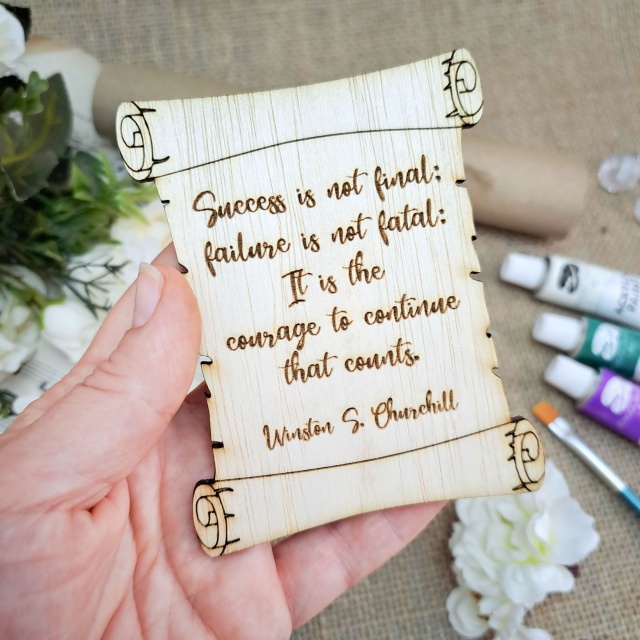 Success is not final:
failure is not fatal:
It is the
courage to continue
that counts.
Winston S. Churchill